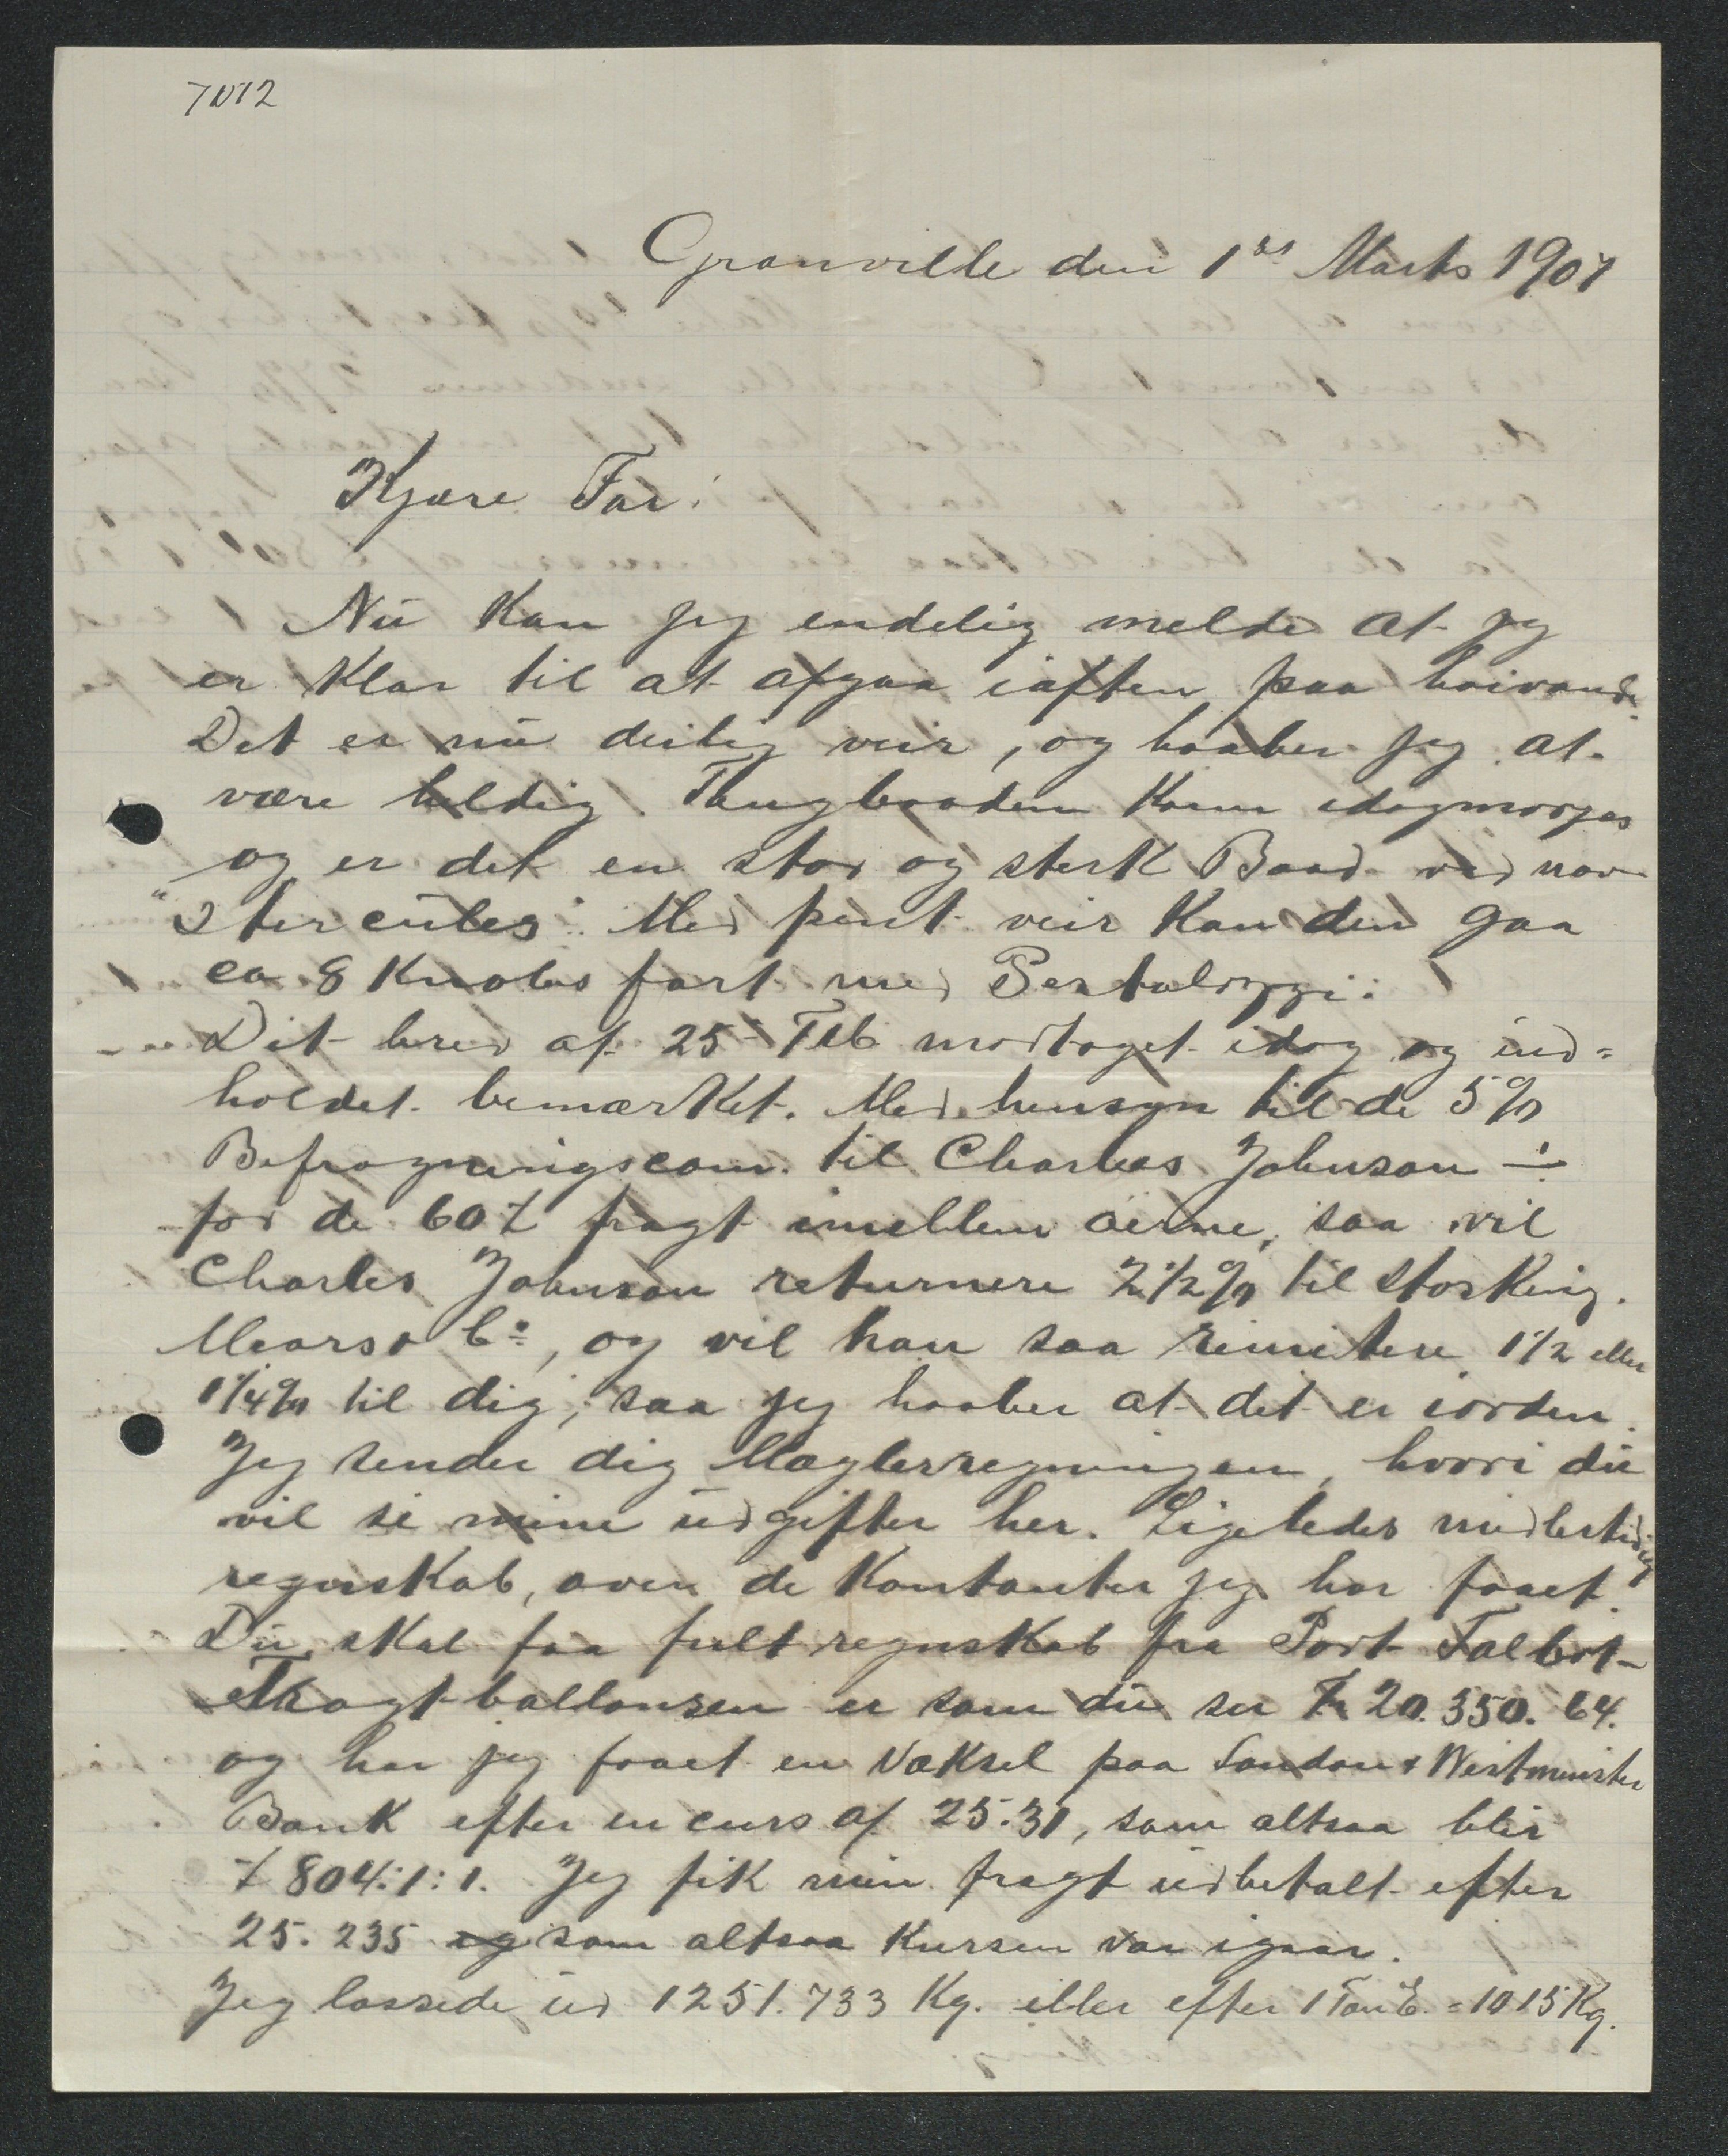 7012
Granville den 1st Marts 1907
Kjære Far!
Nu kan jeg endelig melde at jeg
er klar til at afgaa iaften paa høivande.
Det er nu deilig veir, og haaber jeg at
være heldig. Taugbaaden kom idagmorges
og er det en stor og sterk Baad ved navn
"Hercules". Med pent veir kan den gaa
ca 8 Knobs fart med Pestalozzi.
Dit brev af 25 Feb modtaget idag og ind=
holdet bemærket. Med hensyn til de 5%
Befragningscom. til Charles Johnson ÷
for de 60 £ fragt imellem øerne, saa vil
Charles Johnson returnere 2 1/2 % til Stocking.
Mears & Co, og vil han saa remitere 1 1/2 eller
1 1/4 % til dig, saa jeg haaber at det er iorden.
Jeg sender dig Mæglerregningen, hvori du
vil se mine udgifter her. Ligeledes midlertidig
regnskab, over de Kontanter jeg har faaet.
Du skal faa fult regnskab fra Port Talbot-
Fragtballansen er som du ser Fr 20.350.64.
og har jeg faaet en Væksel paa London & Westminster
Bank efter en curs af 25.31, som altsaa blir
£ 804:1:1. Jeg fik min fragt udbetalt efter
25.235 og som altsaa Kursen var igaar.
Jeg lossede ud 1251.733 Kg. eller efter 1 Ton E. = 1015 Kg.